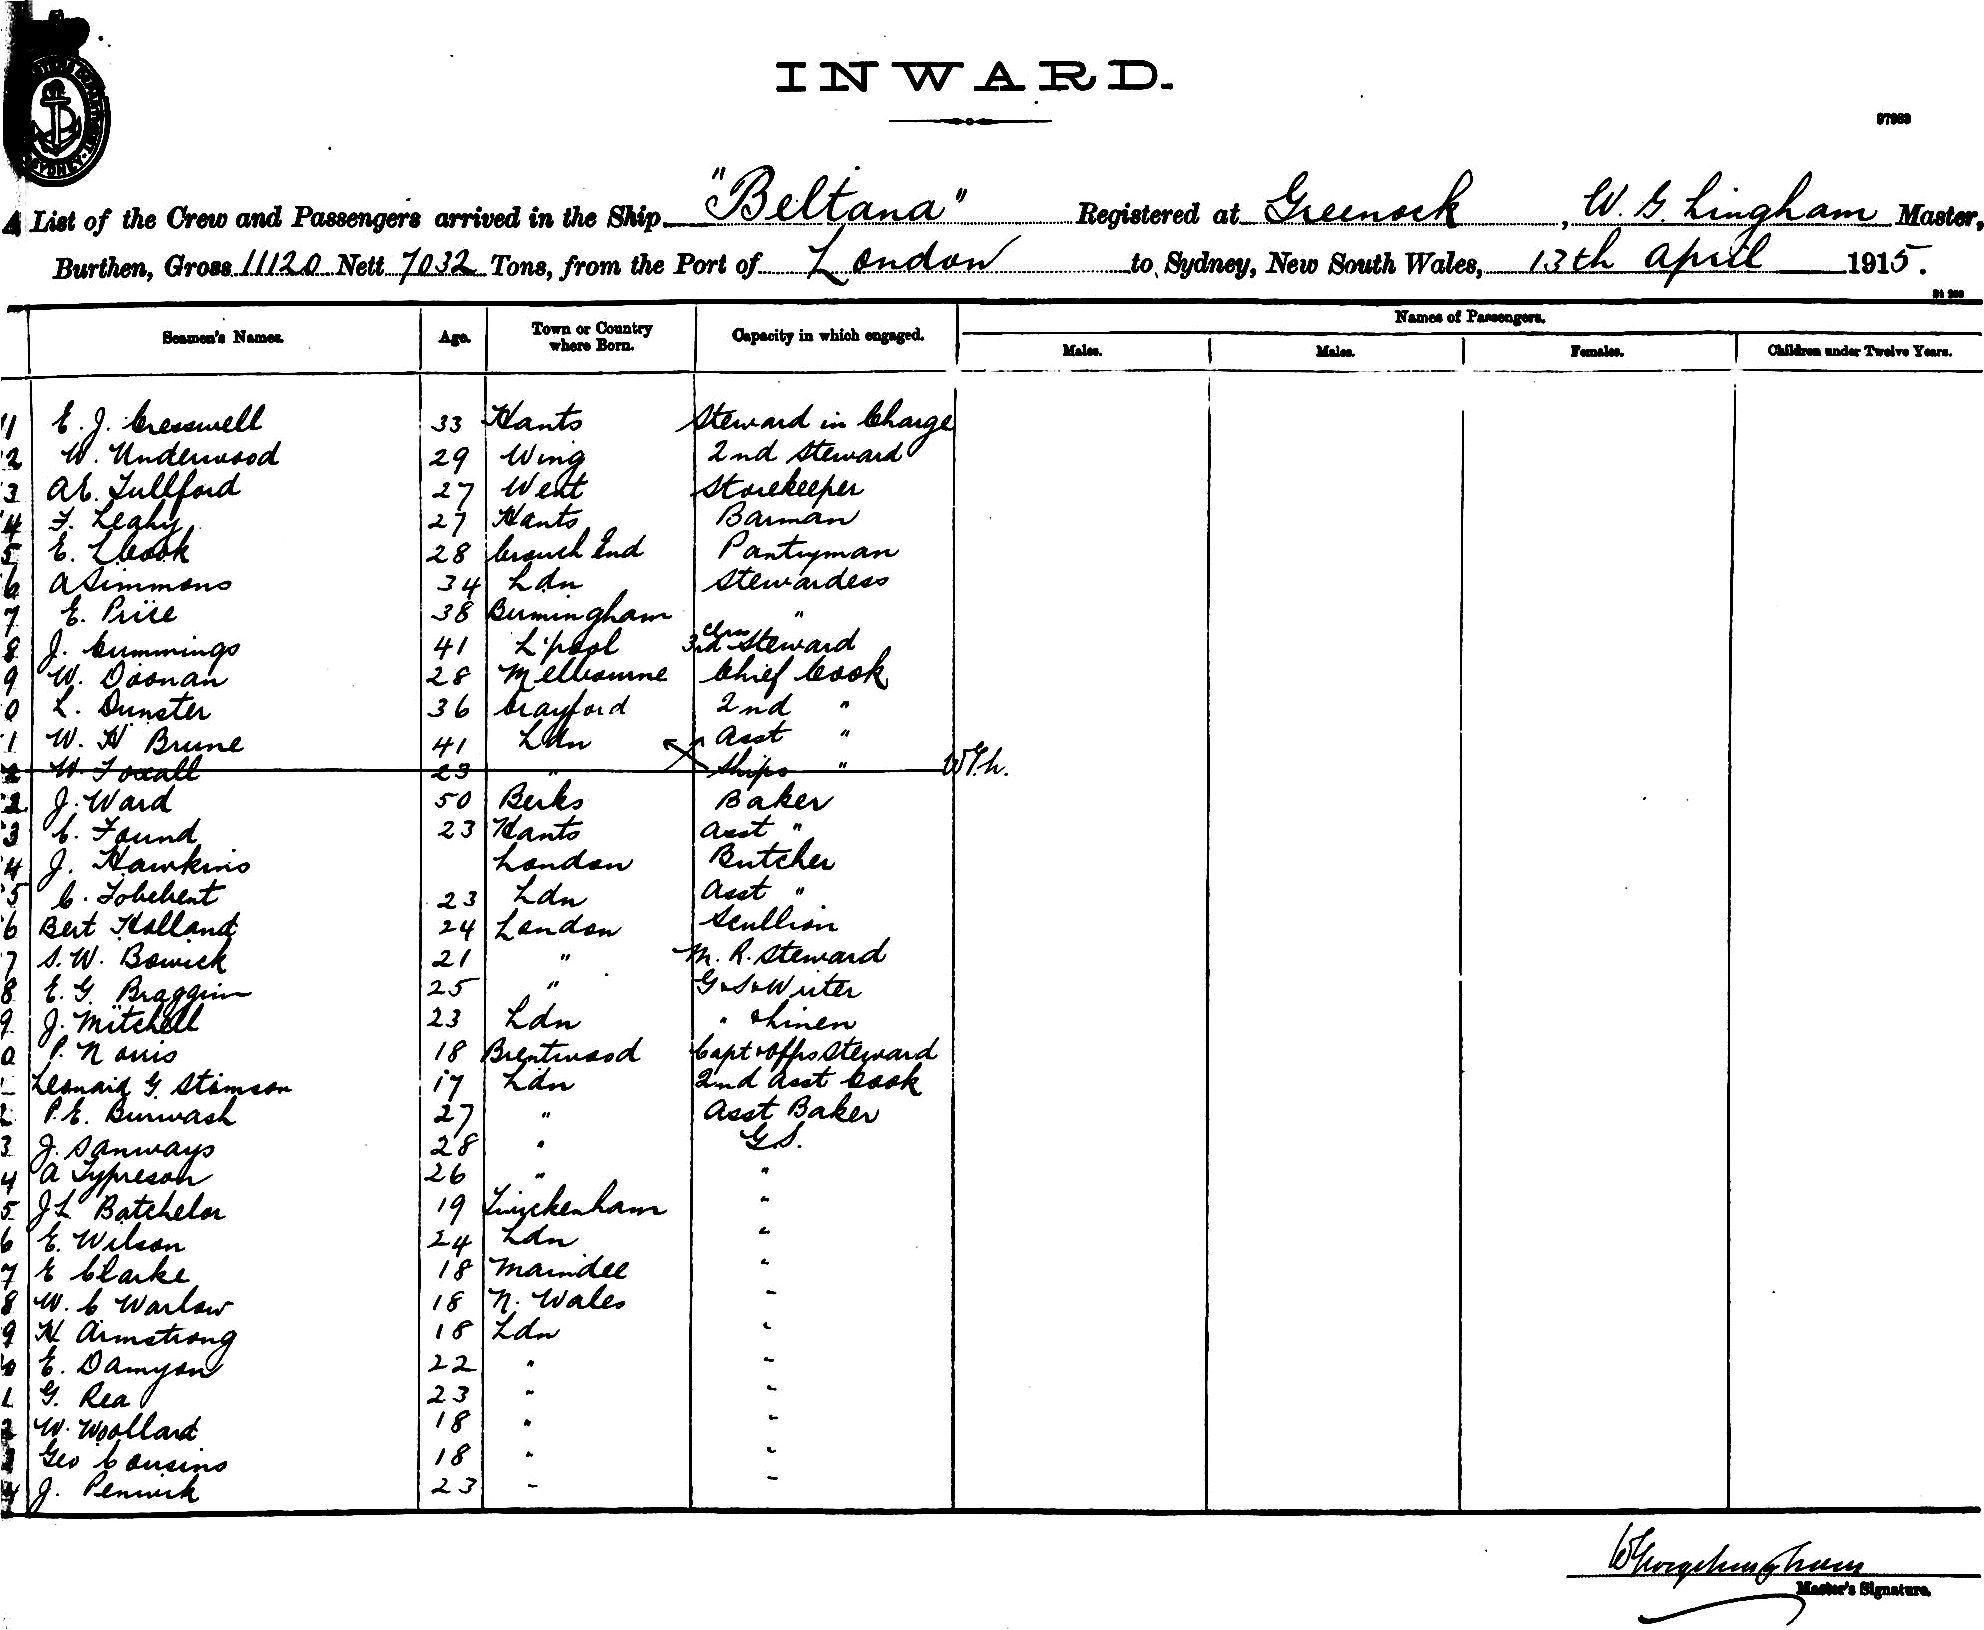 INWARD.
97989
A List of the Crew and Passengers arrived in the Ship "Beltana" Registered at Greenock, W. G. Lingham Master,
Burthen, Gross 11120 Nett 7032 Tons, from the Port of London to Sydney, New South Wales, 13th April 1915.
Names of Passengers.
Seamen's Names. Age. Town or Country where Born. Capacity in which engaged. Males. Males. Females. Children under Twelve Years.
1 E. J. Cresswell 33 Hants Steward in Charge
2 W. Underwood 29 Wing 2nd Steward
3 A.E. Fullford 27 Went Storekeeper
4 F. Leahy 27 Hants Barman
5 E. L Cook 28 Crouch End Pantryman
6 A Simmons 34 Ldn Stewardess
7 E. Price 38 Birmingham "
8 J. Cummings 41 L'pool 3rd Steward
9 W. Doonan 28 Melbourne Chief Cook
0 L. Dunster 36 Crayford 2nd "
1 W. H Brune 41 Ldn Asst "
2 W. Foxall 23 " Ships "
2 J. Ward 50 Berks Baker
3 C. Found 23 Hants Asst "
4 J. Hawkins London Butcher
5 C. 23 Ldn Asst "
6 Bert Holland 24 London Scullion
7 S. W. Bowick 21 " M. R. Steward
8 E. G. Braggin 25 " G.S. Writer
9 J. Mitchell 23 Ldn " Linen
0 P. Norris 18 Brentwood Capt & Offrs Steward
Leonard G. Stimson 17 Ldn 2nd Asst Cook
P. E. Burwash 27 " Asst Baker
3 J. Sanways 28 " G.S.
4 A Sypreson 26 " "
5 J L Batchelor 19 Twickenham "
6 E. Wilson 24 Ldn "
7 E Clarke 18 Maindee "
8 W. C Warlow 18 N. Wales "
9 H Armstrong 18 Ldn "
0 E. Damyon 22 " "
1 G. Rea 23 " "
2 W. Woollard 18 " "
3 Geo Cousins 18 " "
4 J. Penwick 23 " "
Master's Signature.